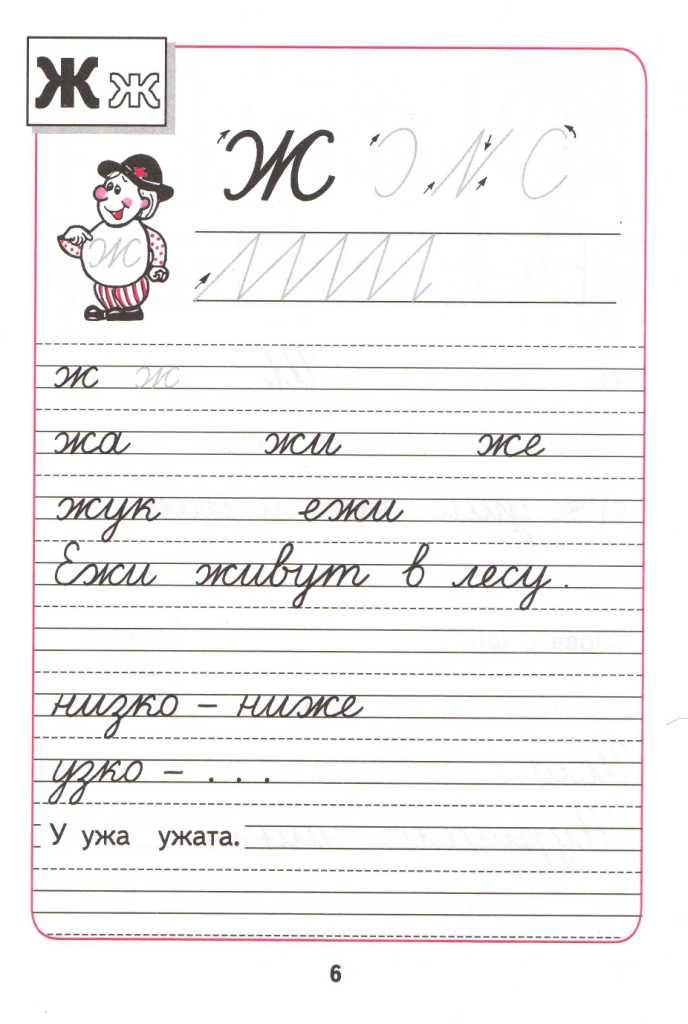 Ж ж
Ж
ж
ж ж
жа жи же
жук ежи
Ежи живут в лесу.
низко – ниже
узко – . . .
У ужа ужата.
6